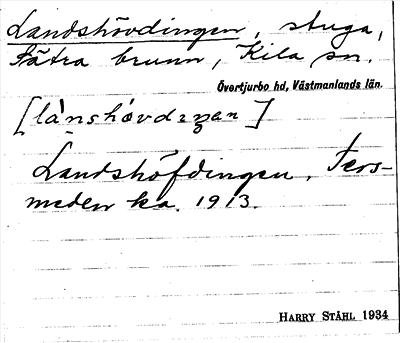 Landshövdingen, stuga,
Sätra brunn, Kila sn.
Övertjurbo hd, Västmanlands län.
[lánshǿvdiŋan]
Landshöfdingen. Ters-
meden ka. 1913.
HARRY STÅHL 1934